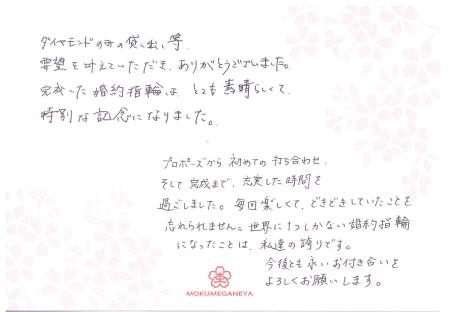 ダイヤモンドのみの貸し出し等、
要望を叶えていただき、ありがとうございました。
完成した婚約指輪は、とても素晴らしくて、
特別な記念になりました。
プロポーズから初めての打ち合わせ、
そして完成まで、充実した時間を
過ごしました。毎回楽しくて、どきどきしていたことを
忘れられません。世界に1つしかない婚約指輪
になったことは、私達の誇りです。
今後とも永いお付き合いを
よろしくお願いします。
MOKUMEGANEYA